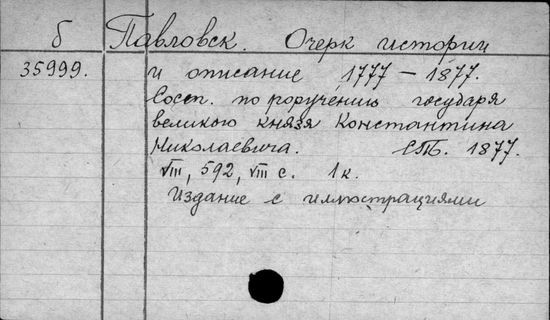 б Павловск. Очерк истории
35999. и описание 1777 – 1877.
Сост. по поручению государя
великого князя Константина
Николаевича. СПб. 1877.
VIII, 592, VIII с. 1 к.
Издание с иллюстрациями